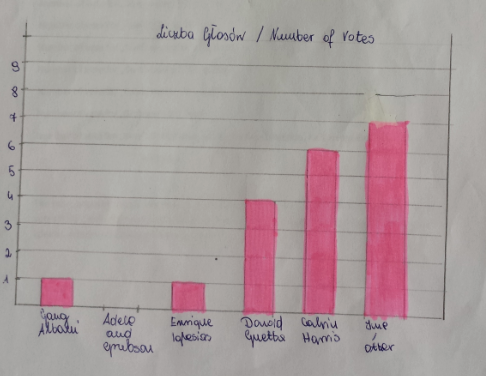 Liczba Głosów / Number of votes
9
8
7
6
5
4
3
2
1
Adele
and
Enrique
Iglesias
David
Guetta
Calvin
Harris
Inne
/
other